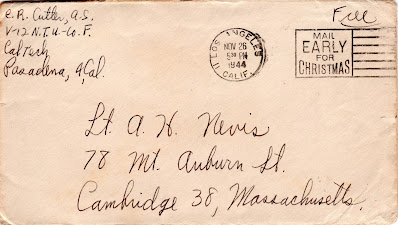 C. R. Cutler, A.S.
V-12 N.T.U.-Co. F.
CalTech
Pasadena, 4, Cal.
Free
LOS ANGELES
NOV 26
5 30 PM
1944
CALIF.
MAIL
EARLY
FOR
CHRISTMAS
Lt. A. H. Nevis
78 Mt. Auburn St.
Cambridge 38, Massachusetts.